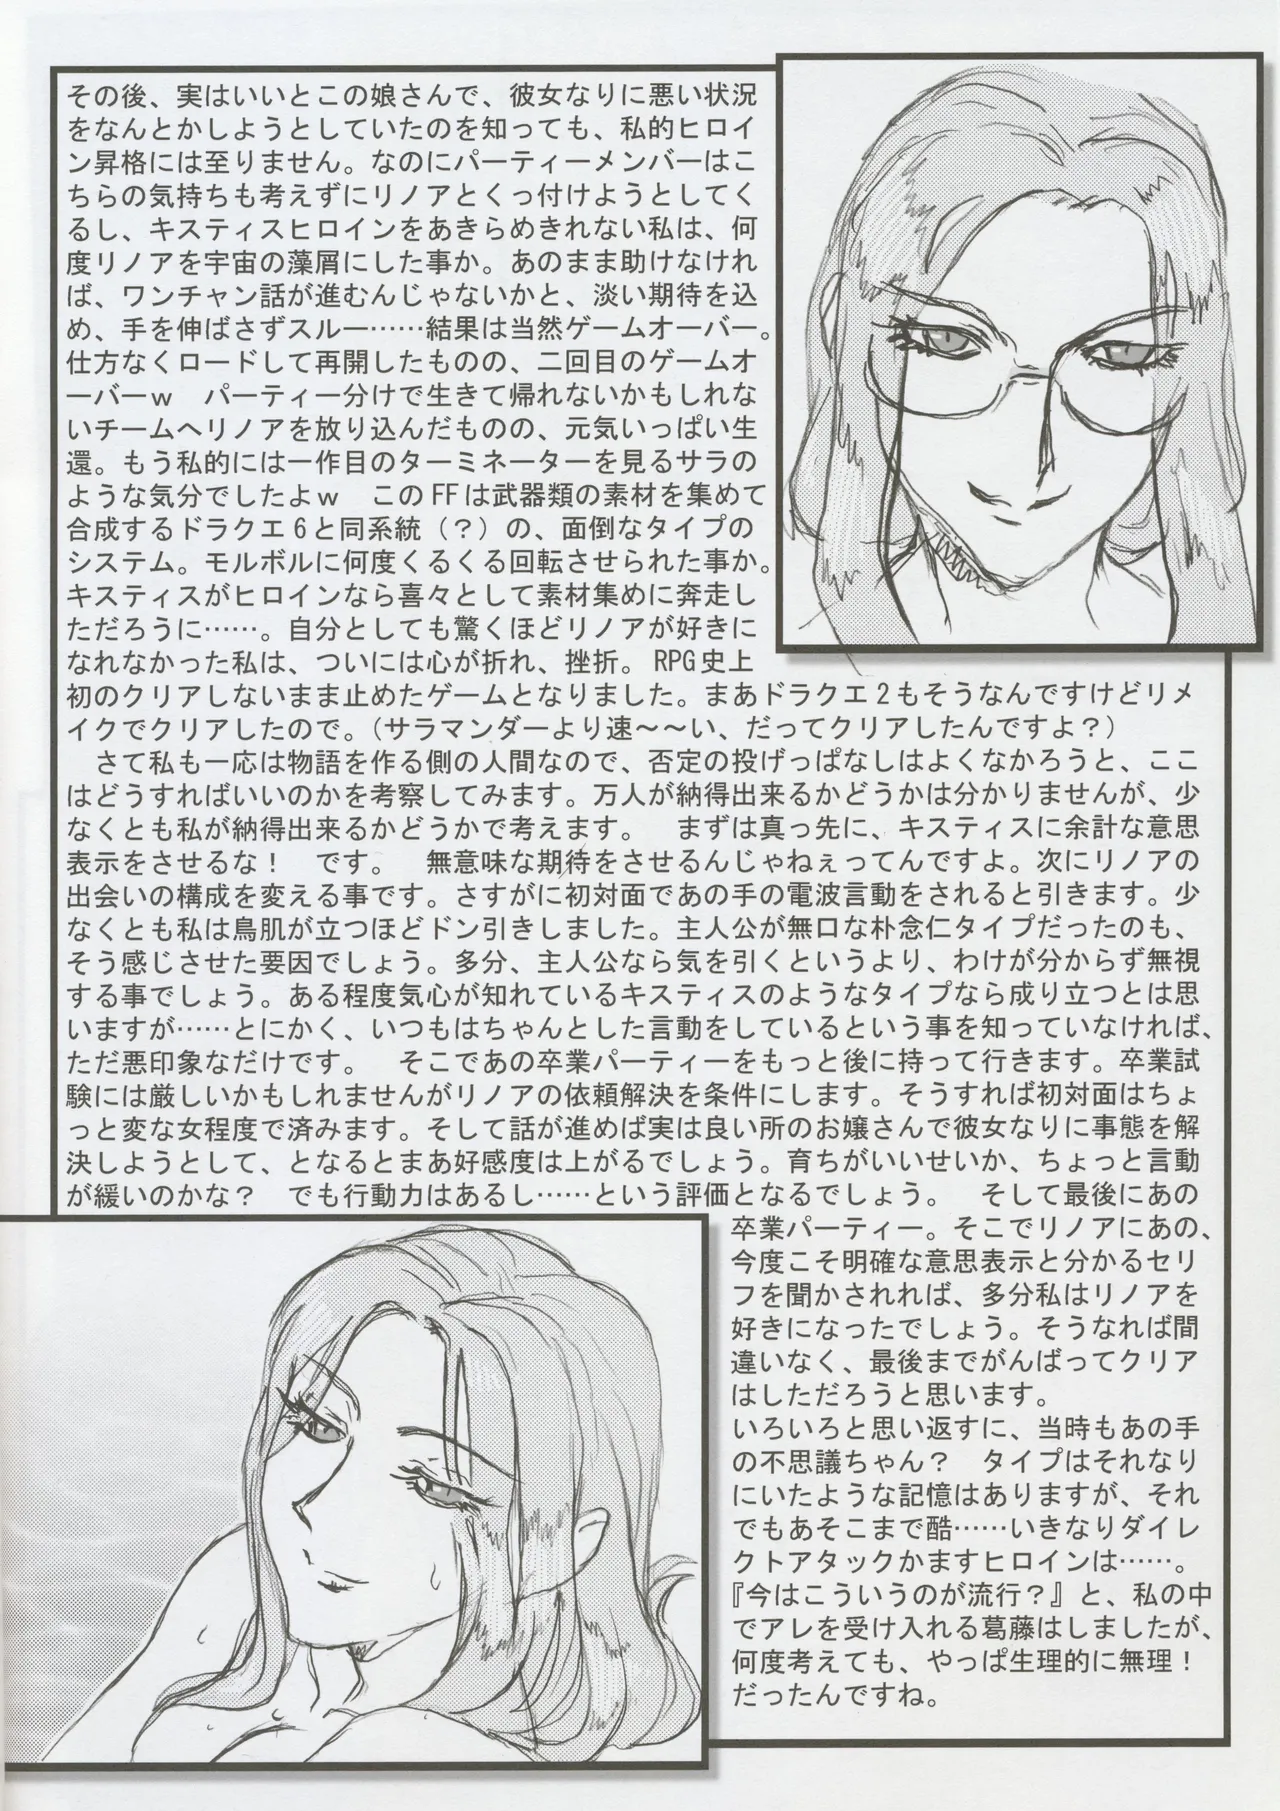 その後、実はいいとこの娘さんで、彼女なりに悪い状況
をなんとかしようとしていたのを知っても、私的ヒロイ
ン昇格には至りません。なのにパーティーメンバーはこ
ちらの気持ちも考えずにリノアとくっ付けようとしてく
るし、キスティスヒロインをあきらめきれない私は、何
度リノアを宇宙の藻屑にした事か。あのまま助けなけれ
ば、ワンチャン話が進むんじゃないかと、淡い期待を込
め、手を伸ばさずスルー……結果は当然ゲームオーバー。
仕方なくロードして再開したものの、二回目のゲームオ
ーバーｗ　パーティー分けで生きて帰れないかもしれな
いチームへリノアを放り込んだものの、元気いっぱい生
還。もう私的には一作目のターミネーターを見るサラの
ような気分でしたよｗ　このFFは武器類の素材を集めて
合成するドラクエ6と同系統（？）の、面倒なタイプの
システム。モルボルに何度くるくる回転させられた事か。
キスティスがヒロインなら喜々として素材集めに奔走し
ただろうに……。自分としても驚くほどリノアが好きに
なれなかった私は、ついには心が折れ、挫折。RPG史上
初のクリアしないまま止めたゲームとなりました。まあドラクエ2もそうなんですけどリメ
イクでクリアしたので。（サラマンダーより速～～い、だってクリアしたんですよ？）
　さて私も一応は物語を作る側の人間なので、否定の投げっぱなしはよくなかろうと、ここ
はどうすればいいのかを考察してみます。万人が納得出来るかどうかは分かりませんが、少
なくとも私が納得出来るかどうかで考えます。　まずは真っ先に、キスティスに余計な意思
表示をさせるな！　です。　無意味な期待をさせるんじゃねぇってんですよ。次にリノアの
出会いの構成を変える事です。さすがに初対面であの手の電波言動をされると引きます。少
なくとも私は鳥肌が立つほどドン引きしました。主人公が無口な朴念仁タイプだったのも、
そう感じさせた要因でしょう。多分、主人公なら気を引くというより、わけが分からず無視
する事でしょう。ある程度気心が知れているキスティスのようなタイプなら成り立つとは思
いますが……とにかく、いつもはちゃんとした言動をしているという事を知っていなければ、
ただ悪印象なだけです。　そこであの卒業パーティーをもっと後に持って行きます。卒業試
験には厳しいかもしれませんがリノアの依頼解決を条件にします。そうすれば初対面はちょ
っと変な女程度で済みます。そして話が進めば実は良い所のお嬢さんで彼女なりに事態を解
決しようとして、となるとまあ好感度は上がるでしょう。育ちがいいせいか、ちょっと言動
が緩いのかな？　でも行動力はあるし……という評価となるでしょう。　そして最後にあの
卒業パーティー。そこでリノアにあの、
今度こそ明確な意思表示と分かるセリ
フを聞かされれば、多分私はリノアを
好きになったでしょう。そうなれば間
違いなく、最後までがんばってクリア
はしただろうと思います。
いろいろと思い返すに、当時もあの手
の不思議ちゃん？　タイプはそれなり
にいたような記憶はありますが、それ
でもあそこまで酷……いきなりダイレ
クトアタックかますヒロインは……。
『今はこういうのが流行？』と、私の中
でアレを受け入れる葛藤はしましたが、
何度考えても、やっぱ生理的に無理！
だったんですね。